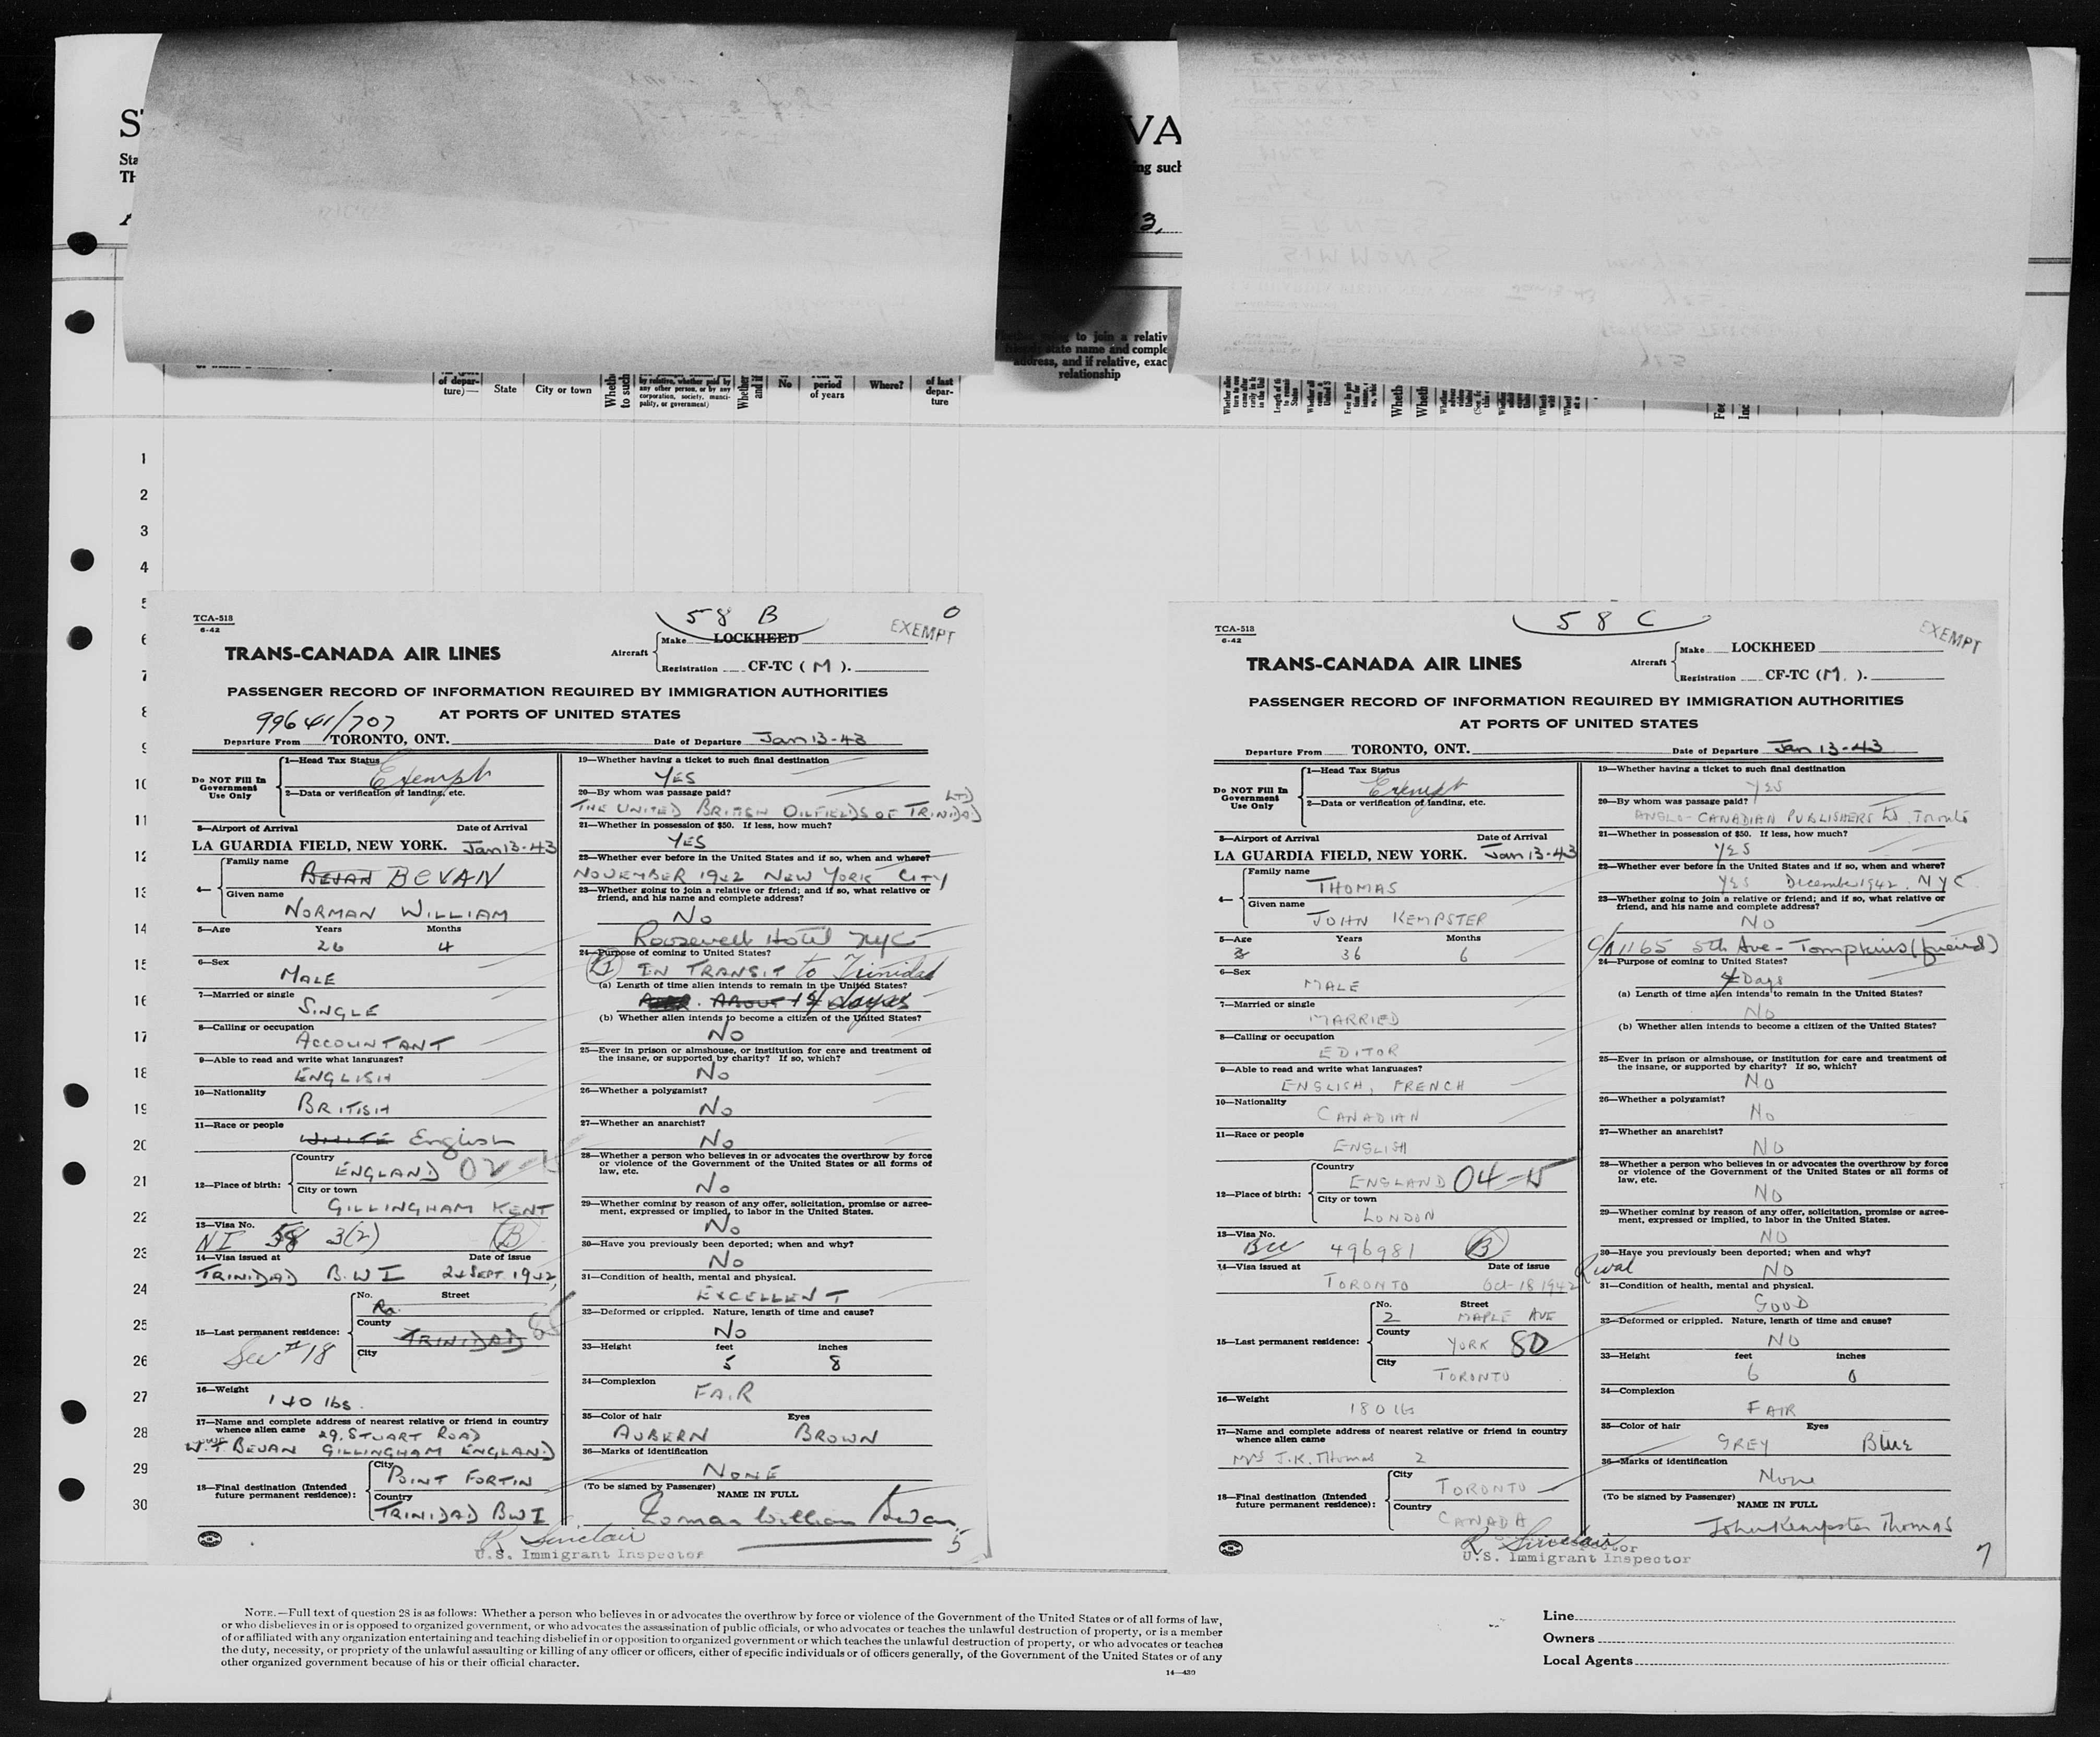 of depar-
ture)— State City or town No period
of years Where? of last
depar-
ture
by relative, whether paid by
any other person, or by any
corporation, society, munici-
pality, or government)
to join a relativ
state name and comple
address, and if relative, exac
relationship
ng such
3,
1
2
3
4
5
6
7
8
9
10
11
12
13
14
15
16
17
18
19
20
21
22
23
24
25
26
27
28
29
30
58 B 0
TCA-518
6-42
EXEMPT
Aircraft Make LOCKHEED
Registration CF-TC ( M ).
TRANS-CANADA AIR LINES
PASSENGER RECORD OF INFORMATION REQUIRED BY IMMIGRATION AUTHORITIES
AT PORTS OF UNITED STATES
99641/707
Departure From TORONTO, ONT. Date of Departure Jan 13-43
Do NOT Fill In
Government
Use Only
1—Head Tax Status
Exempt
2—Data or verification of landing, etc.
3—Airport of Arrival Date of Arrival
LA GUARDIA FIELD, NEW YORK. Jan 13-43
4— Family name
BEVAN BEVAN
Given name
NORMAN WILLIAM
5—Age Years Months
26 4
6—Sex
MALE
7—Married or single
SINGLE
8—Calling or occupation
ACCOUNTANT
9—Able to read and write what languages?
ENGLISH
10—Nationality
BRITISH
11—Race or people
WHITE English
12—Place of birth: Country
ENGLAND 02
City or town
GILLINGHAM KENT
13—Visa No.
NI 58 3(2) B
14—Visa issued at Date of issue
TRINIDAD B.W I 24 SEPT. 1942,
15—Last permanent residence: No. Street
County
TRINIDAD
City
See # 18
16—Weight
140 lbs.
17—Name and complete address of nearest relative or friend in country
whence alien came 29. STUART ROAD
W.T BEVAN GILLINGHAM ENGLAND
18—Final destination (Intended
future permanent residence): City
POINT FORTIN
Country
TRINIDAD BWI
R Sinclair
U.S. Immigrant Inspector
19—Whether having a ticket to such final destination
YES
20—By whom was passage paid?
THE UNITED BRITISH OILFIELDS OF TRINIDAD LTD
21—Whether in possession of $50. If less, how much?
YES
22—Whether ever before in the United States and if so, when and where?
NOVEMBER 1942 NEW YORK CITY
23—Whether going to join a relative or friend; and if so, what relative or
friend, and his name and complete address?
No
Roosevelt Hotel NYC
24—Purpose of coming to United States?
IN TRANSIT to Trinidad
(a) Length of time alien intends to remain in the United States?
ABOUT days
(b) Whether alien intends to become a citizen of the United States?
No
25—Ever in prison or almshouse, or institution for care and treatment of
the insane, or supported by charity? If so, which?
No
26—Whether a polygamist?
No
27—Whether an anarchist?
No
28—Whether a person who believes in or advocates the overthrow by force
or violence of the Government of the United States or all forms of
law, etc.
No
29—Whether coming by reason of any offer, solicitation, promise or agree-
ment, expressed or implied, to labor in the United States.
No
30—Have you previously been deported; when and why?
No
31—Condition of health, mental and physical.
EXCELLENT
32—Deformed or crippled. Nature, length of time and cause?
No
33—Height feet inches
5 8
34—Complexion
FAIR
35—Color of hair Eyes
AUBERN BROWN
36—Marks of identification
NONE
(To be signed by Passenger)
NAME IN FULL
Norman William Bevan
5
58 C
TCA-518
6-42
EXEMPT
Aircraft Make LOCKHEED
Registration CF-TC (M. ).
TRANS-CANADA AIR LINES
PASSENGER RECORD OF INFORMATION REQUIRED BY IMMIGRATION AUTHORITIES
AT PORTS OF UNITED STATES
Departure From TORONTO, ONT. Date of Departure Jan 13-43
Do NOT Fill In
Government
Use Only
1—Head Tax Status
Exempt
2—Data or verification of landing, etc.
3—Airport of Arrival Date of Arrival
LA GUARDIA FIELD, NEW YORK. Jan 13-43
4— Family name
THOMAS
Given name
JOHN KEMPSTER
5—Age Years Months
36 6
6—Sex
MALE
7—Married or single
MARRIED
8—Calling or occupation
EDITOR
9—Able to read and write what languages?
ENGLISH, FRENCH
10—Nationality
CANADIAN
11—Race or people
ENGLISH
12—Place of birth: Country
ENGLAND 04-15
City or town
LONDON
13—Visa No.
BCC 496981 B
14—Visa issued at Date of issue
TORONTO Oct-18 1942
15—Last permanent residence: No. Street
2 MAPLE AVE
County
YORK 80
City
TORONTO
16—Weight
180 lb
17—Name and complete address of nearest relative or friend in country
whence alien came
Mrs J.K. Thomas 2
18—Final destination (Intended
future permanent residence): City
TORONTO
Country
CANADA
R Sinclair
U.S. Immigrant Inspector
19—Whether having a ticket to such final destination
YES
20—By whom was passage paid?
ANGLO-CANADIAN PUBLISHERS Ltd, Toronto
21—Whether in possession of $50. If less, how much?
YES
22—Whether ever before in the United States and if so, when and where?
YES December 1942, NYC
23—Whether going to join a relative or friend; and if so, what relative or
friend, and his name and complete address?
NO
c/o 1165 5th Ave- Tompkins (friend)
24—Purpose of coming to United States?
4 Days
(a) Length of time alien intends to remain in the United States?
No
(b) Whether alien intends to become a citizen of the United States?
25—Ever in prison or almshouse, or institution for care and treatment of
the insane, or supported by charity? If so, which?
NO
26—Whether a polygamist?
No
27—Whether an anarchist?
NO
28—Whether a person who believes in or advocates the overthrow by force
or violence of the Government of the United States or all forms of
law, etc.
NO
29—Whether coming by reason of any offer, solicitation, promise or agree-
ment, expressed or implied, to labor in the United States.
NO
30—Have you previously been deported; when and why?
NO
31—Condition of health, mental and physical.
GOOD
32—Deformed or crippled. Nature, length of time and cause?
NO
33—Height feet inches
6 0
34—Complexion
FAIR
35—Color of hair Eyes
GREY Blue
36—Marks of identification
None
(To be signed by Passenger)
NAME IN FULL
John Kempster Thomas
7
NOTE.—Full text of question 28 is as follows: Whether a person who believes in or advocates the overthrow by force or violence of the Government of the United States or of all forms of law,
or who disbelieves in or is opposed to organized government, or who advocates the assassination of public officials, or who advocates or teaches the unlawful destruction of property, or is a member
of or affiliated with any organization entertaining and teaching disbelief in or opposition to organized government or which teaches the unlawful destruction of property, or who advocates or teaches
the duty, necessity, or propriety of the unlawful assaulting or killing of any officer or officers, either of specific individuals or of officers generally, of the Government of the United States or of any
other organized government because of his or their official character.
14—430
Line
Owners
Local Agents